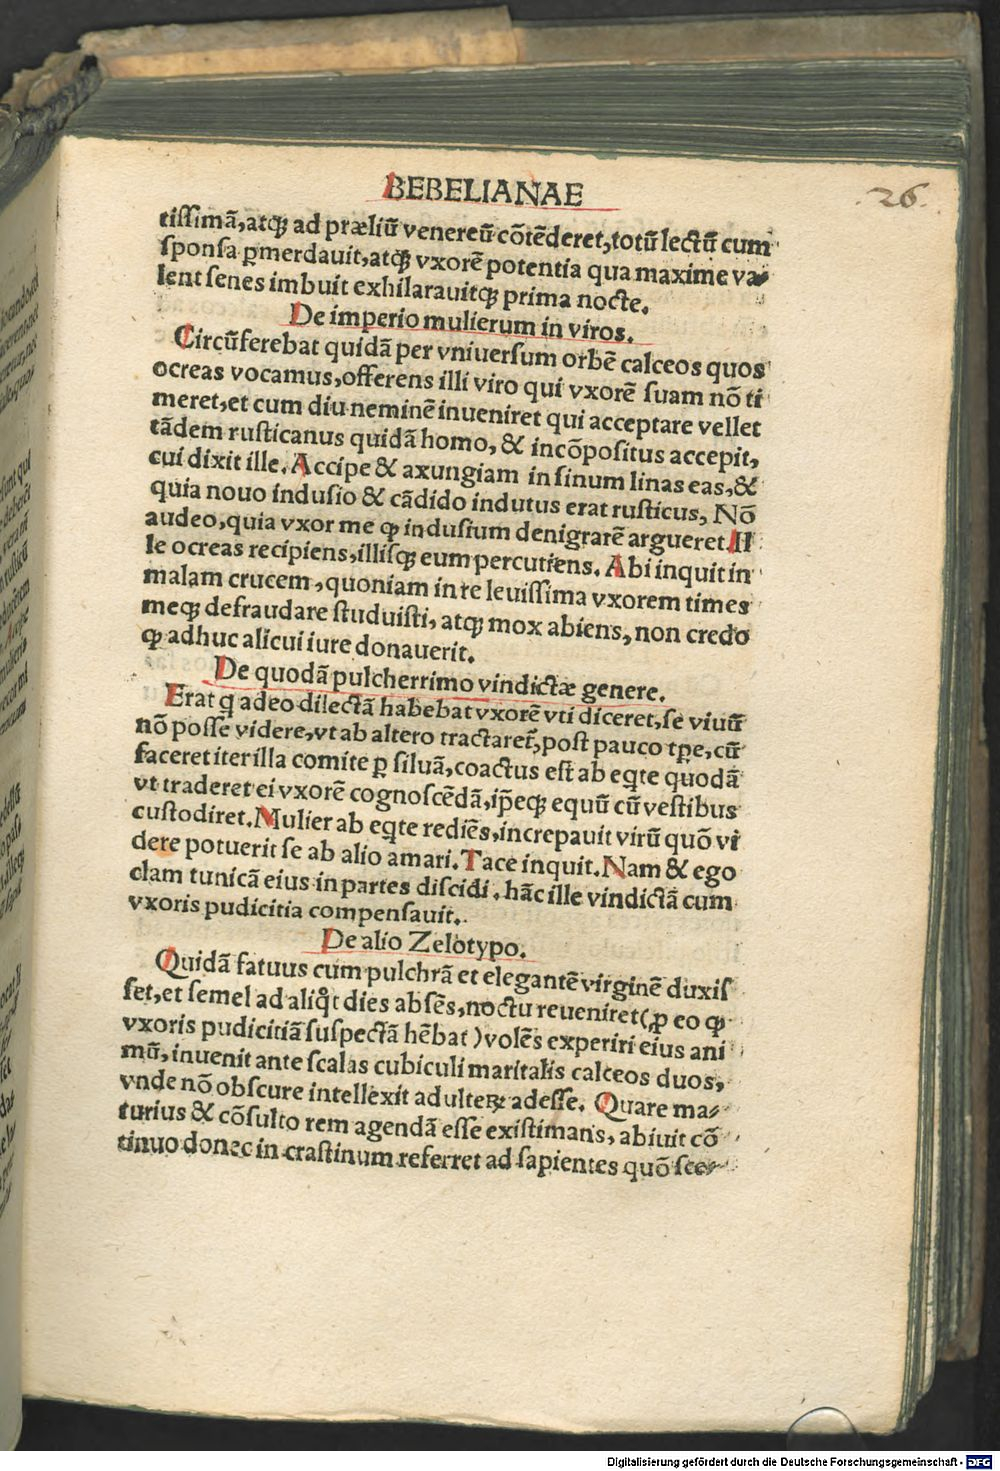 BEBELIANAE
26.
tissimã, atq̃ ad præliũ venereũ cõtẽderet, totũ lectũ cum
sponsa ꝑmerdauit, atq̃ vxorẽ potentia qua maxime va⸗
lent senes imbuit exhilarauitq̃ prima nocte.
De imperio mulierum in viros.
Circũferebat quidã per vniuersum orbẽ calceos quos
ocreas vocamus, offerens illi viro qui vxorẽ suam nõ ti
meret, et cum diu neminẽ inueniret qui acceptare vellet
tãdem rusticanus quidã homo, & incõpositus accepit,
cui dixit ille. Accipe & axungiam in sinum linas eas, &
quia nouo indusio & cãdido indutus erat rusticus, Nõ
audeo, quia vxor me ꝙ indusium denigrarẽ argueret. Il
le ocreas recipiens, illisq̃ eum percutiens. Abi inquit in
malam crucem, quoniam in re leuissima vxorem times
meq̃ defraudare studuisti, atq̃ mox abiens, non credo
ꝙ adhuc alicui iure donauerit.
De quodã pulcherrimo vindictæ genere.
Erat q adeo dilectã habebat vxorẽ vti diceret, se viuũ
nõ posse videre, vt ab altero tractaret̃, post pauco tp̃e, cũ
faceret iter illa comite ꝑ siluã, coactus est ab eq̃te quodã
vt traderet ei vxorẽ cognoscẽdã, ip̃eq̃ equũ cũ vestibus
custodiret. Mulier ab eq̃te rediẽs, increpauit virũ quõ vi
dere potuerit se ab alio amari. Tace inquit. Nam & ego
clam tunicã eius in partes discidi. hãc ille vindictã cum
vxoris pudicitia compensauit.
De alio Zelotypo.
Quidã fatuus cum pulchrã et elegantẽ virginẽ duxis
set, et semel ad aliq̊t dies absẽs, noctu reueniret (ꝓ eo ꝙ
vxoris pudicitiã suspectã hẽbat) volẽs experiri eius ani
mũ, inuenit ante scalas cubiculi maritalis calceos duos,
vnde nõ obscure intellexit adulteꝝ adesse. Quare ma⸗
turius & cõsulto rem agendã esse existimans, abiuit cõ
tinuo donec in crastinum referret ad sapientes quõ
Digitalisierung gefördert durch die Deutsche Forschungsgemeinschaft - DFG